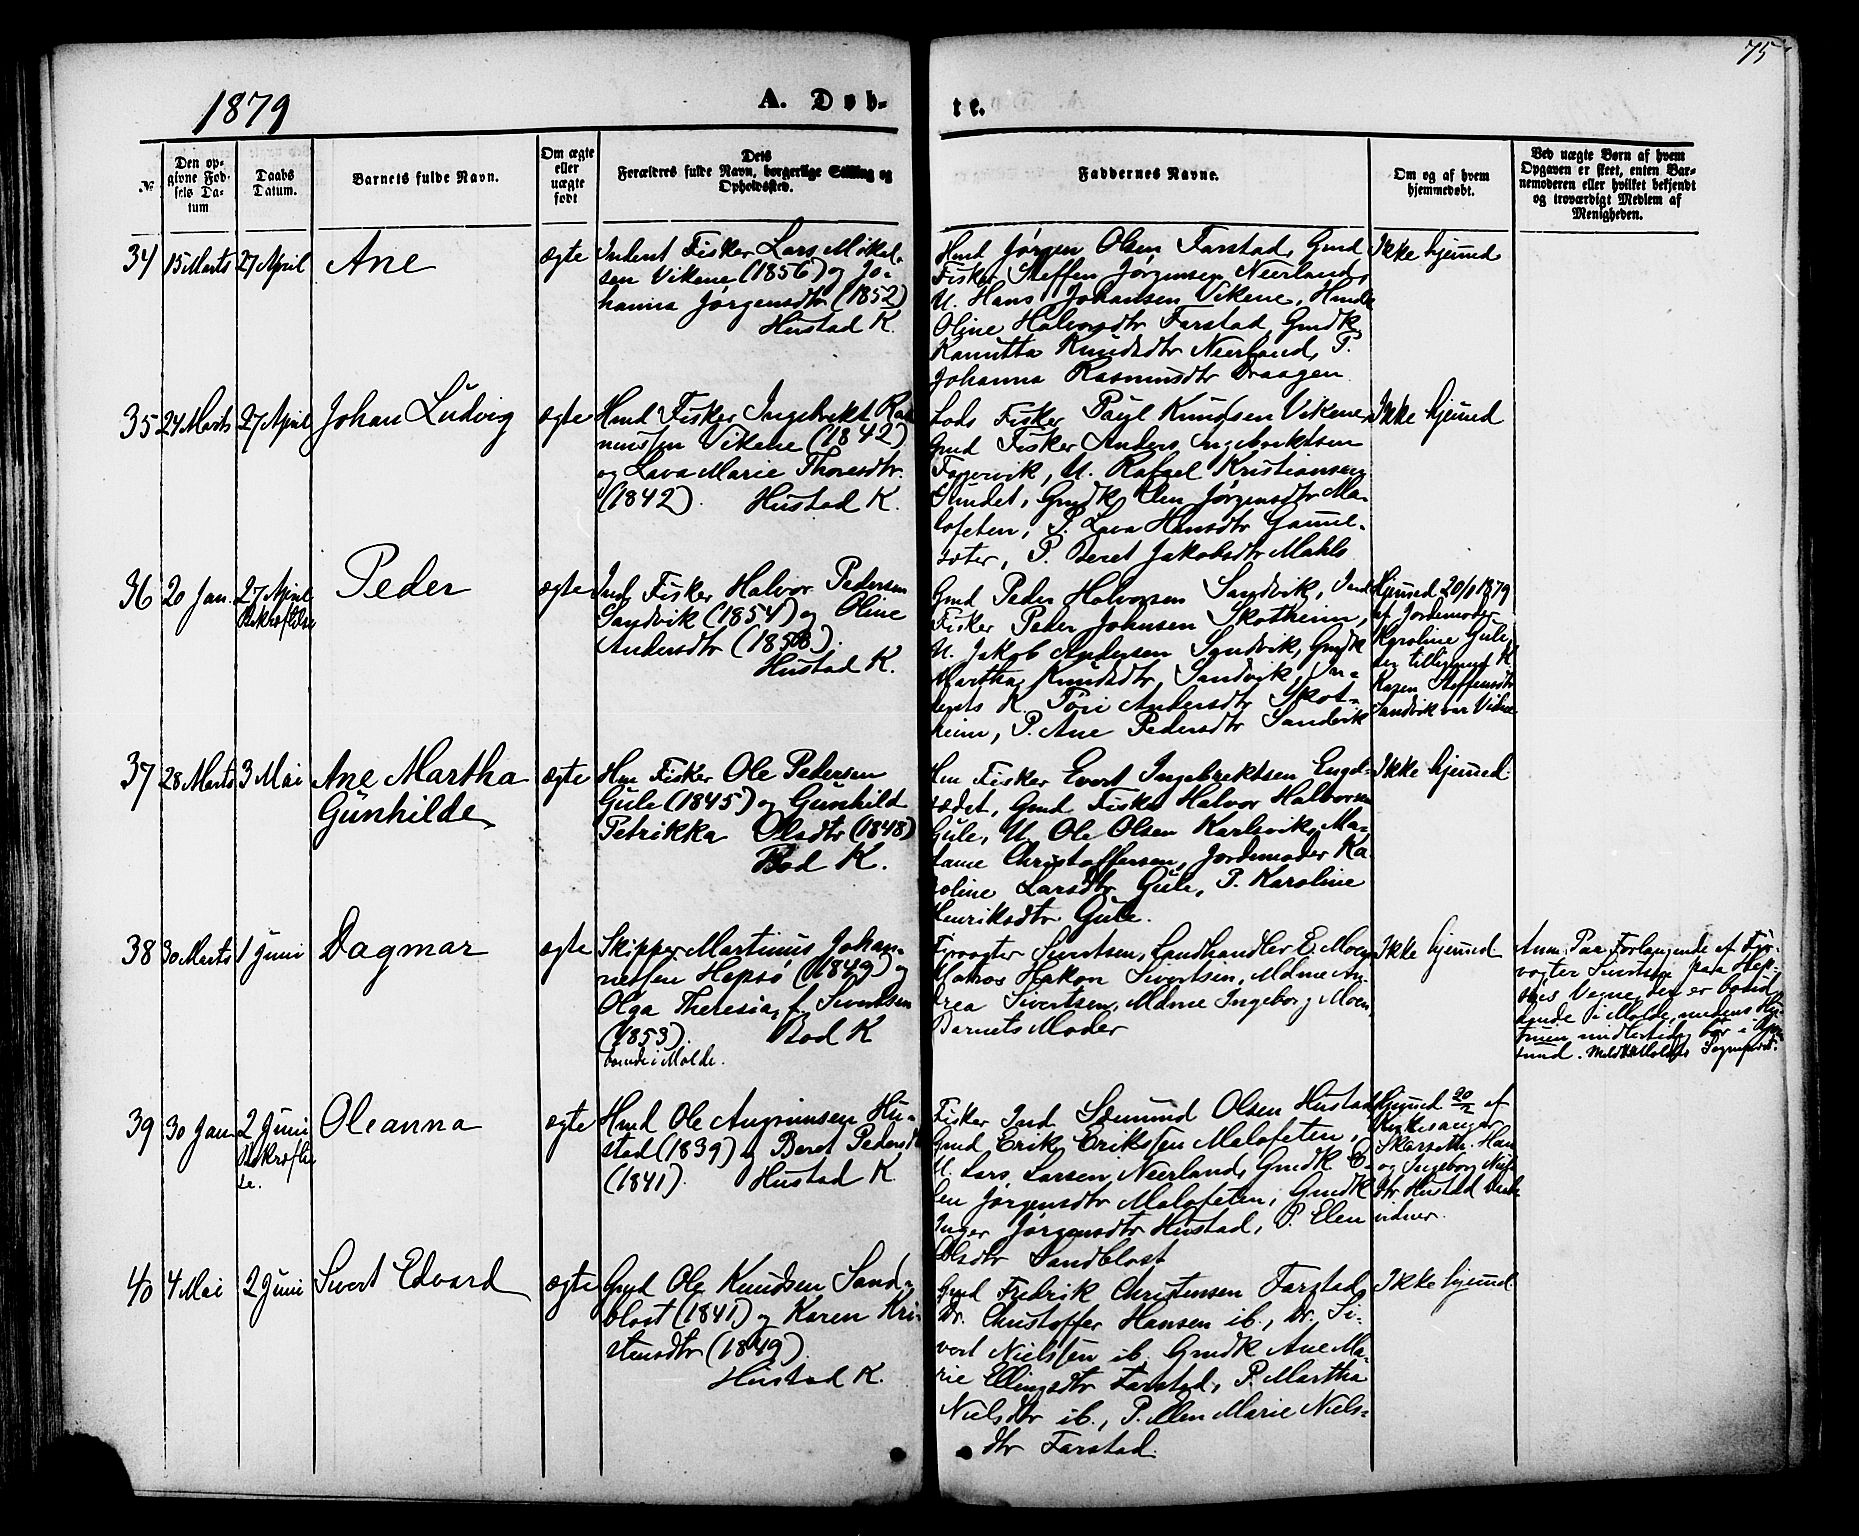 75
1879
A. Døb-
te.
No
Den op-
givne Fød-
sels Da-
tum
Daabs
Datum.
Barnets fulde Navn.
Om ægte
eller
uægte
født
Dets
Forældres fulde Navn, borgerlige Stilling og
Opholdssted.
Faddernes Navne.
Om og af hvem
hjemmedøbt.
Ved uægte Børn af hvem
Opgaven er skeet, enten Bar-
nemoderen eller hvilket bekjendt
og troværdigt Medlem af
Menigheden.
34 15 Marts 27 April Ane ægte
Inderst Fisker Lars Mikel-
sen Vikene (1856) og Jo-
hanna Jørgensdtr (1852)
Hustad K.
Hmd Jørgen Olsen Farstad, Gmd
Fisker Steffen Jørgensen Neerland,
U. Hans Johansen Vikene, Hmdk
Oline Halvorsdtr Farstad, Gmdk
Kanutta Knudsdtr Neerland, P.
Johanna Rasmusdtr Draagen
Ikke hjemd
35 24 Marts 27 April Johan Ludvig ægte
Hmd Fisker Ingebrikt Ras
mussen Vikene (1842)
og Lava Marie Thoresdtr.
(1842). Hustad K.
Lods Fisker Paul Knudsen Vikene,
Gmd Fisker Anders Ingebriktsen
Fagervik, U. Rafael Kristiansen
Sundet, Gmdk Elen Jørgensdtr Ma-
lefeten, P. Lava Hansdtr Gammel-
sæter, P. Beret Jakobsdtr Mahle
Ikke hjemd
36 20 Jan. 27 April
Bekræftelse
Peder ægte
Ind. Fisker Halvor Pedersen
Sandvik (1854) og Oline
Andersdtr (1858).
Hustad K.
Gmd Peder Halvorsen Sandvik, Ind
Fisker Peder Johnsen Skotheim,
U. Jakob Andersen Sandvik, Gmdk
Martha Knudsdtr Sandvik, In-
dersts K. Føri Andersdtr Skot-
heim, P. Ane Pedersdtr Sandvik
Hjemd 20/1 1879
af Jordemoder
Karoline Gule,
Karen Steffensdtr
Sandvik var Vidne
37 28 Marts 3 Mai Ane Martha
Gunhilde ægte
Hm Fisker Ole Pedersen
Gule (1845) og Gunhild
Petrikka Olsdtr (1848)
Bod K.
Hm Fisker Evert Ingebrektsen Engel-
sædet, Gmd Fisker Halvor Halvorsen
Gule, U. Ole Olsen Karlsvik, Ma-
dame Christoffersen, Jordemoder Ka
roline Larsdtr Gule, P. Karoline
Henriksdtr Gule.
Ikke hjemd
38 30 Marts 1 Juni Dagmar ægte
Skipper Martinus Johan-
nessen Hepsø (1849) og
Olga Theresia, f. Sivertsen
(1853). Bod K
boende i Molde.
Fyrvogter Sivertsen, Landhandler E. Moen
Matros Hakon Sivertsen, Mdme An-
drea Sivertsen, Mdme Ingeborg Moen,
Barnets Moder
Ikke hjemd
Anm. Paa Forlangende af Fyr-
vogter Sivertsen paa Hep-
søs Vegne, der er bosid-
dende i Molde, medens Hu-
struen midlertidig bor i Bjørn
sund.
39 30 Jan 2 Juni
Bekræftel
se.
Oleanna ægte
Hmd Ole Angrimsen Hu-
stad (1839) og Beret Pedersdtr
(1841). Hustad K
Fisker Ind Sæmund Olsen Hustad,
Gmd Erik Eriksen Malefeten,
U. Lars Larsen Neerland, Gmdk E-
len Jørgensdtr Malefeten, Gmdk
Inger Jørgensdtr Hustad, P. Elen
Olsdtr Sandblost
Hjemd 20/2 af
Kirkesanger
Skarseth. Han
og Ingeborg Niels
dtr Hustad
vidner.
40 4 Mai 2 Juni Sivert Edvard ægte
Gmd Ole Knudsen Sand-
blost (1841) og Karen Kri-
stensdtr (1849).
Hustad K.
Gmd Fredrik Christensen Farstad,
Dr. Christoffer Hansen ib., Dr. Si-
vert Nielssen ib. Gmdk Ane Ma-
rie Ellingsdtr Farstad, P. Martha
Nielsdtr ib., P. Elen Marie Niels-
dtr Farstad.
Ikke hjemd